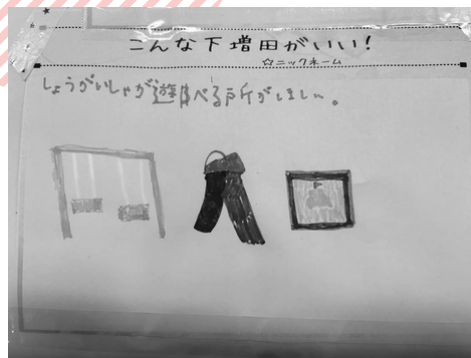 こんな下増田がいい!
☆ニックネーム
しょうがいしゃが遊べる所がほしい。